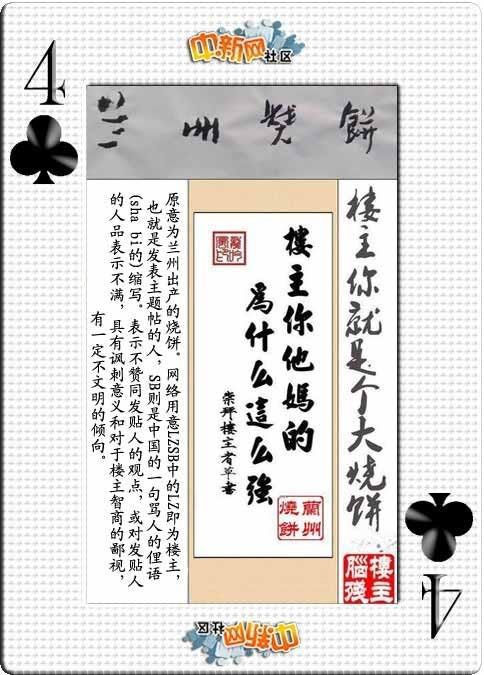 4
中新网社区
兰州燒餅
樓主你就是个大燒餅
樓主
腦殘
樓主你他媽的
爲什么這么強
崇拜樓主者草書
蘭州
燒餅
原意为兰州出产的烧饼。网络用意LZSB中的LZ即为楼主，
也就是发表主题帖的人，SB则是中国的一句骂人的俚语
(sha bi的)缩写。表示不赞同发贴人的观点，或对发贴人
的人品表示不满，具有讽刺意义和对于楼主智商的鄙视，
有一定不文明的倾向。
4
中新网社区